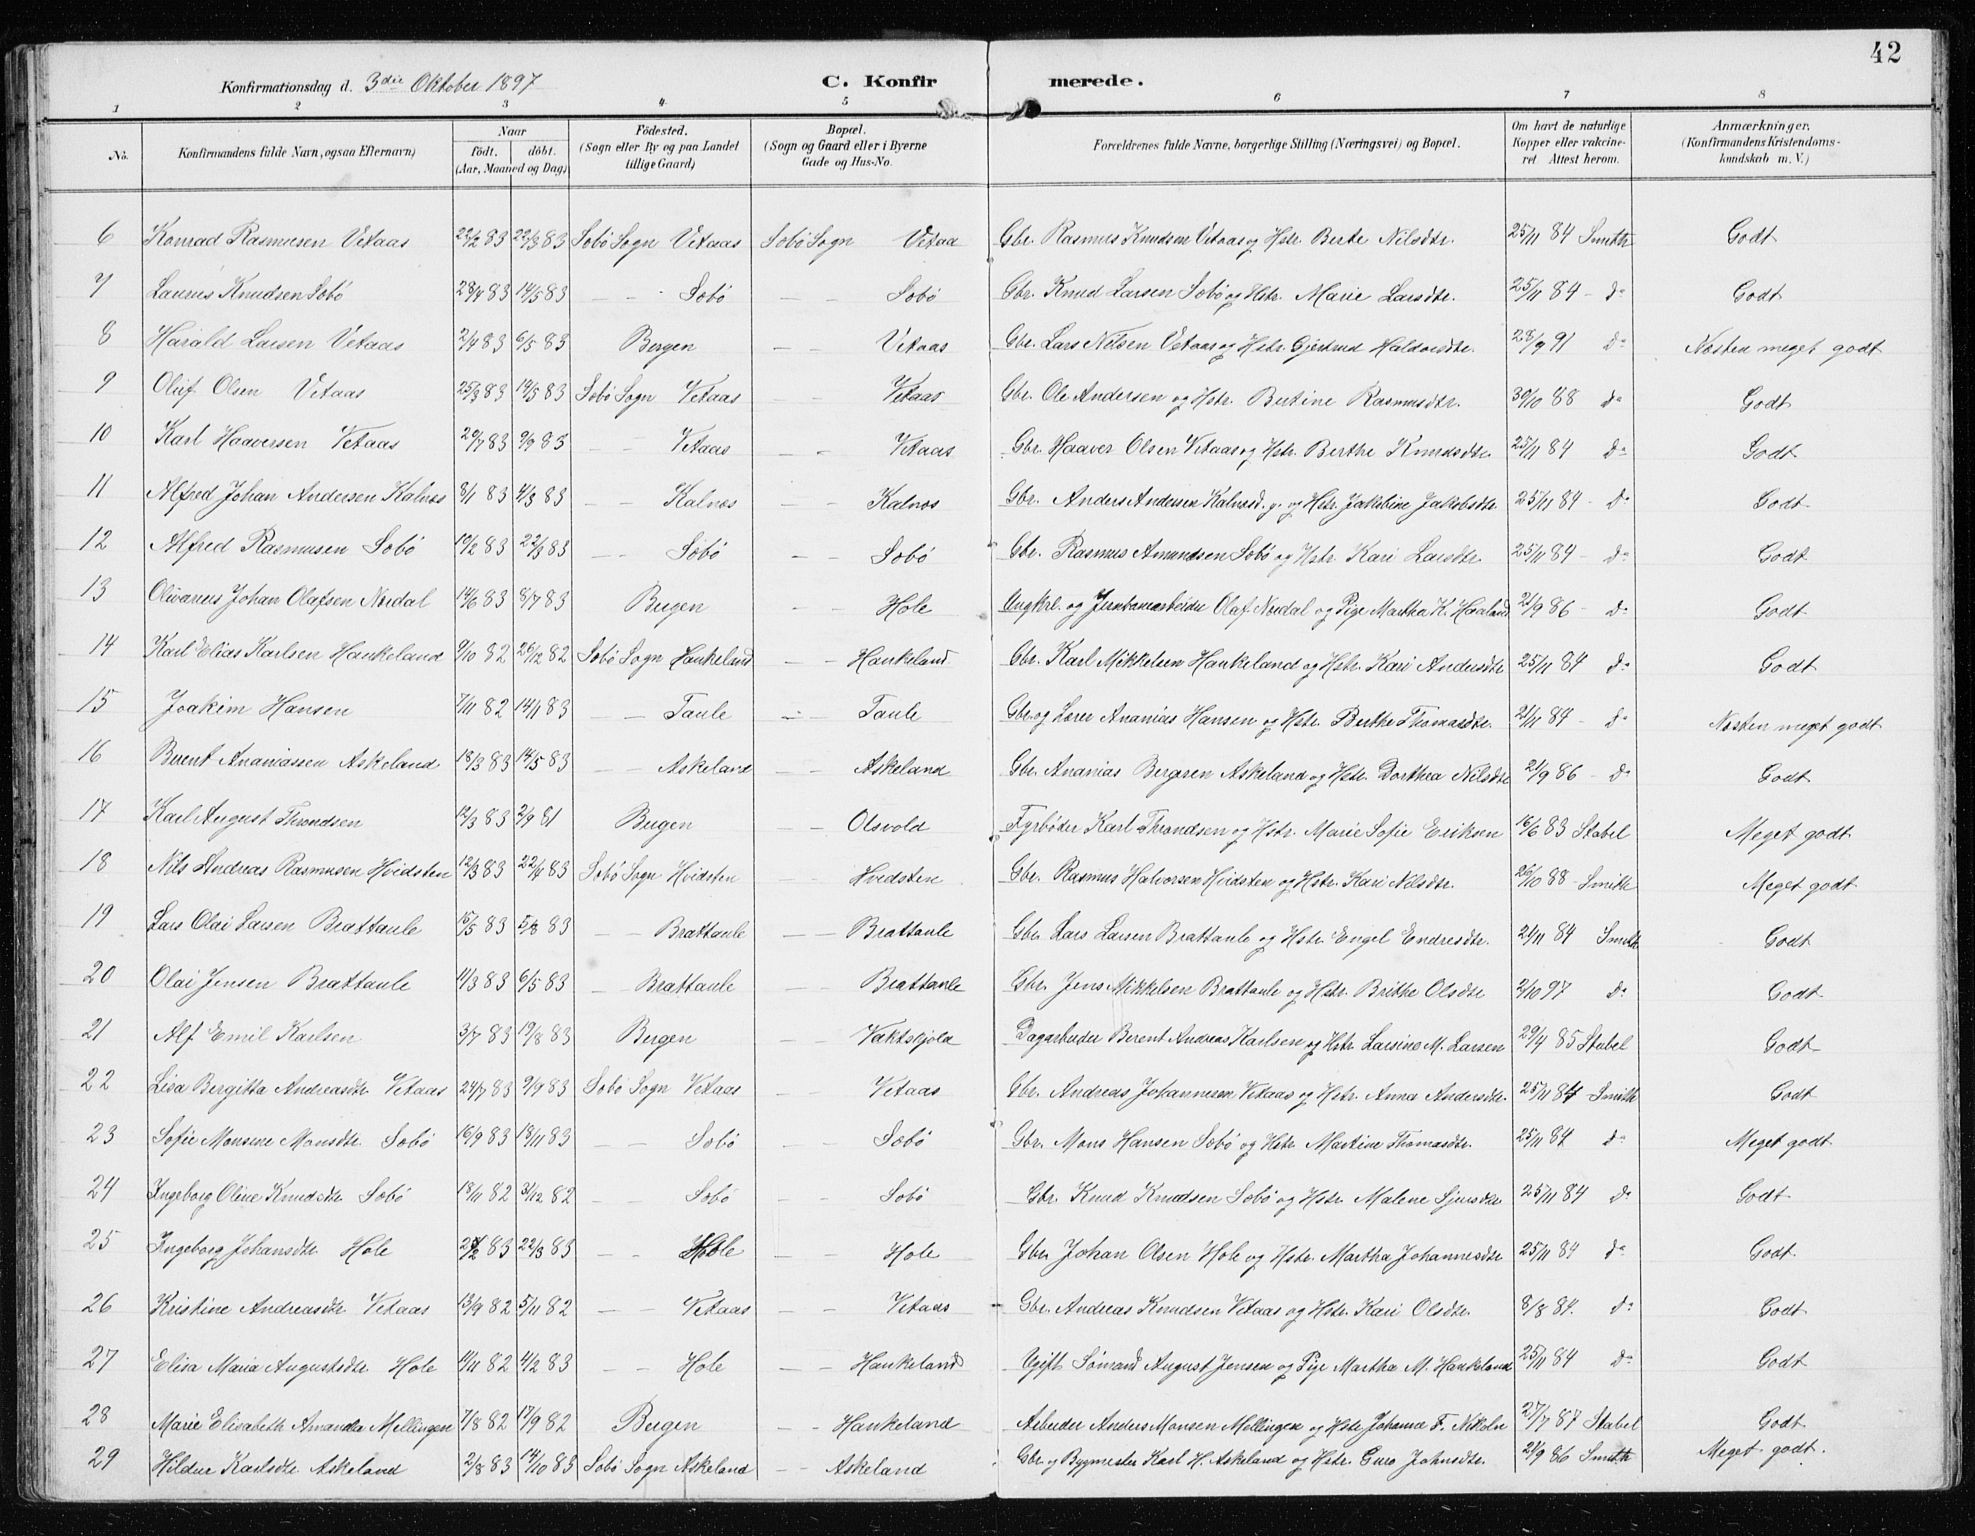 42
Konfirmationsdag d. 3die Oktober 1897 C. Konfirmerede.
1 2 3 4 5 6 7 8
No. Konfirmandens fulde Navn, ogsaa Efternavn) Naar födt. döbt. (Aar, Maaned og Dag) Födested. (Sogn eller By og paa Landet tillige Gaard) Bopæl. (Sogn og Gaard eller i Byerne Gade og Hus-No. Forældrenes fulde Navne, borgerlige Stilling (Næringsvei) og Bopæl. Om havt de naturlige Kopper eller vakcineret Attest herom. Anmærkninger. (Konfirmandens Kristendomskundskab m. V.)
6 Konrad Rasmusen Vetaas 22/2 83 22/3 83 Sobö Sogn Vetaas Sobö Sogn Vetaa Gbr. Rasmus Knudsen Vetaas og Hstr. Berte Nilsdtr. 25/11 84 Smith Godt
7 Laurus Knudsen Sobö 28/4 83 14/5 83 — — Sobö — — Sobö Gbr. Knud Larsen Sobö og Hstr. Marie Larsdtr. 25/11 84 - do Godt
8 Harald Larsen Vetaas 2/4 83 6/5 83 Bergen — Vetaas Gbr. Lars Nilsen Vetaas og Hstr. Gjertrud Haldorsdtr. 28/9 91 do Næsten meget godt
9 Oluf Olsen Vetaas 25/3 83 14/5 83 Sobö Sogn Vetaas — — Vetaas Gbr. Ole Andersen og Hstr. Bertine Rasmusdtr. 30/10 88 do Godt
10 Karl Haaversen Vetaas 29/7 83 9/9 83 — — Vetaas — — Vetaas Gbr. Haaver Olsen Vetaas og Hstr. Berthe Knudsdtr. 25/11 84 do Godt
11 Alfred Johan Andersen Kalnæs 8/1 83 4/3 83 — — Kalnæs — — Kalnæs Gbr. Anders Andersen Kalnæs og Hstr. Jakobine Jakobsdtr. 25/11 84 - do Godt
12 Alfred Rasmusen Sobö 19/2 83 22/3 83 — — Sobö — — Sobö Gbr. Rasmus Amundsen Sobö og Hstr. Kari Larsdtr. 25/11 84 - do Godt
13 Olivarius Johan Olafsen Nordal 14/6 83 8/7 83 Bergen — — Hole Ungkrl. og Olaf Nordal og Pige Martha K. Haaland 21/9 86 - do Godt
14 Karl Elias Karlsen Haukeland 9/10 82 26/12 82 Sobö Sogn Haukeland — — Haukeland Gbr. Karl Mikkelsen Haukeland og Hstr. Kari Andersdtr 25/11 84 do Godt
15 Joakim Hansen 7/11 82 14/1 83 — — Taule — Taule Gbr. og Lærer Ananias Hansen og Hstr. Berthe Thomasdtr. 21/11 84 - do Næsten meget godt
16 Berent Ananiassen Askeland 18/3 83 14/5 83 — — Askeland — — Askeland Gbr. Ananias Bergesen Askeland og Hstr. Dorthea Nilsdtr 21/9 86 - do Godt
17 Karl August Throndsen 12/3 83 2/9 81 Bergen — Olsvold Fyrböder Karl Throndsen og Hstr. Marie Sofie Eriksen 16/6 83 Stabel Meget godt
18 Nils Andreas Rasmusen Hvidsten 12/3 83 22/4 83 Sobö Sogn Hvidsten — — Hvidsten Gbr. Rasmus Halvorsen Hvidsten og Hstr. Kari Nilsdtr. 26/10 88 - Smith Meget godt
19 Lars Olai Larsen Brattaule 15/5 83 5/8 83 — — Brattaule — — Brattaule Gbr. Lars Larsen Brattaule og Hstr. Engel Endresdtr. 21/11 84 Smith Godt
20 Olai Jensen Brattaule 11/3 83 6/5 83 — — Brattaule — — Brattaule Gbr. Jens Mikkelsen Brattaule og Hstr. Brithe Olsdtr 2/10 97 do Godt
21 Alf Emil Karlsen 3/7 83 19/8 83 Bergen — — Vaktskjold Dagarbeider Berent Andreas Karlsen og Hstr Larsine M. Larsen 29/4 85 Stabel Godt
22 Lisa Bergitta Andreasdtr Vetaas 24/7 83 9/9 83 Sobö Sogn Vetaas — — Vetaas Gbr. Andreas Johannesen Vetaas og Hstr. Anna Andersdtr. 25/11 84 Smith Godt
23 Sofie Monsine Monsdtr Sobö 16/9 83 18/11 83 — — Sobö — — Sobö Gbr. Mons Hansen Sobö og Hstr. Martine Thomasdtr. 25/11 84 do Meget godt
24 Ingeborg Oline Knudsdtr Sobö 18/11 82 3/12 82 — — Sobö — — Sobö Gbr. Knud Knudsen Sobö og Hstr. Malene Sjursdtr 25/11 84 do Godt
25 Ingeborg Johansdtr Hole 83 22/3 83 — — Hole — — Hole Gbr. Johan Olsen Hole og Hstr. Martha Johannesdtr 25/11 84 do Godt
26 Kristine Andreasdtr Vetaas 13/9 82 5/11 82 — — Vetaas — — Vetaas Gbr. Andreas Knudsen Vetaas og Hstr. Kari Olsdtr. 8/8 84. do Godt
27 Elisa Maria Augustsdtr Hole 11/11 82 4/2 83 — — Hole — — Haukeland Ugift Sömand August Jensen og Pige Martha M. Haukeland 25/11 84 do Godt
28 Marie Elisabeth Amanda Mellingen 7/8 82 17/9 82 Bergen — — Haukeland Arbeider Anders Monsen Mellingen og Hstr Johanne F. 27/7 87 Stabel Godt
29 Hildur Karlsdtr Askeland 2/8 83 14/10 83 Sobö Sogn Askeland — — Askeland Gbr. og Bygmester Karl H. Askeland og Hstr. Guro Johnsdtr. 21/9 86 Smith Meget godt.